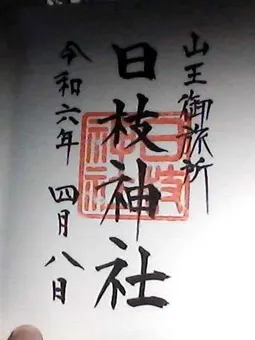 山王御旅所
日枝神社
令和六年 四月八日
日枝
神社